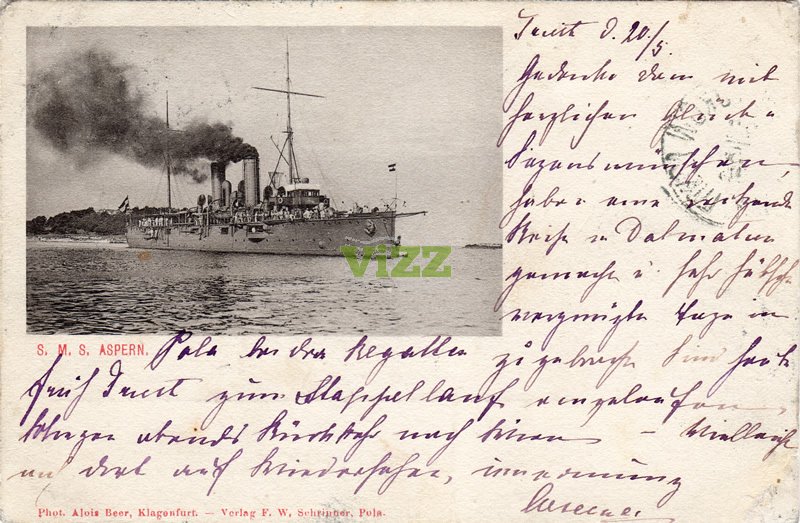 Triest d. 20/5.
Gedenke dem mit
herzlichen Glück u
Segenswünschen,
habe eine reizende
Reise n Dalmatien
gemacht u. sehr hübsche
vergnügte Tage in
Pola bei der Regatta zugebracht Sind heute
früh Triest zum Stappellauf eingelaufen,
Morgen abends Rückkehr nach Wien – Vielleicht
auf Wiedersehen,
S. M. S. ASPERN.
Vizz
Phot. Alois Beer, Klagenfurt. — Verlag F. W. Schrinner, Pola.